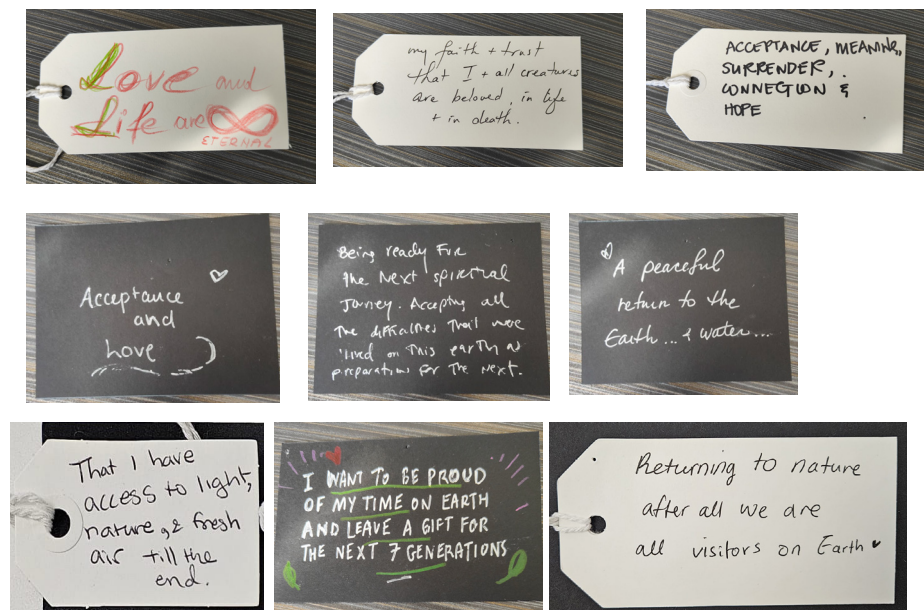 Love and
Life are
ETERNAL
my faith + trust
that I + all creatures
are beloved, in life
+ in death.
ACCEPTANCE, MEANING,
SURRENDER,
CONNECTION &
HOPE
Acceptance
and
Love
Being ready For
the Next spiritual
Journey. Accepting all
The difficulties that were
lived on this earth as
preparation for the Next.
A peaceful
return to the
Earth... & water...
That I have
access to light,
nature, & fresh
air till the
end.
I WANT TO BE PROUD
OF MY TIME ON EARTH
AND LEAVE A GIFT FOR
THE NEXT 7 GENERATIONS
Returning to nature
after all we are
all visitors on Earth